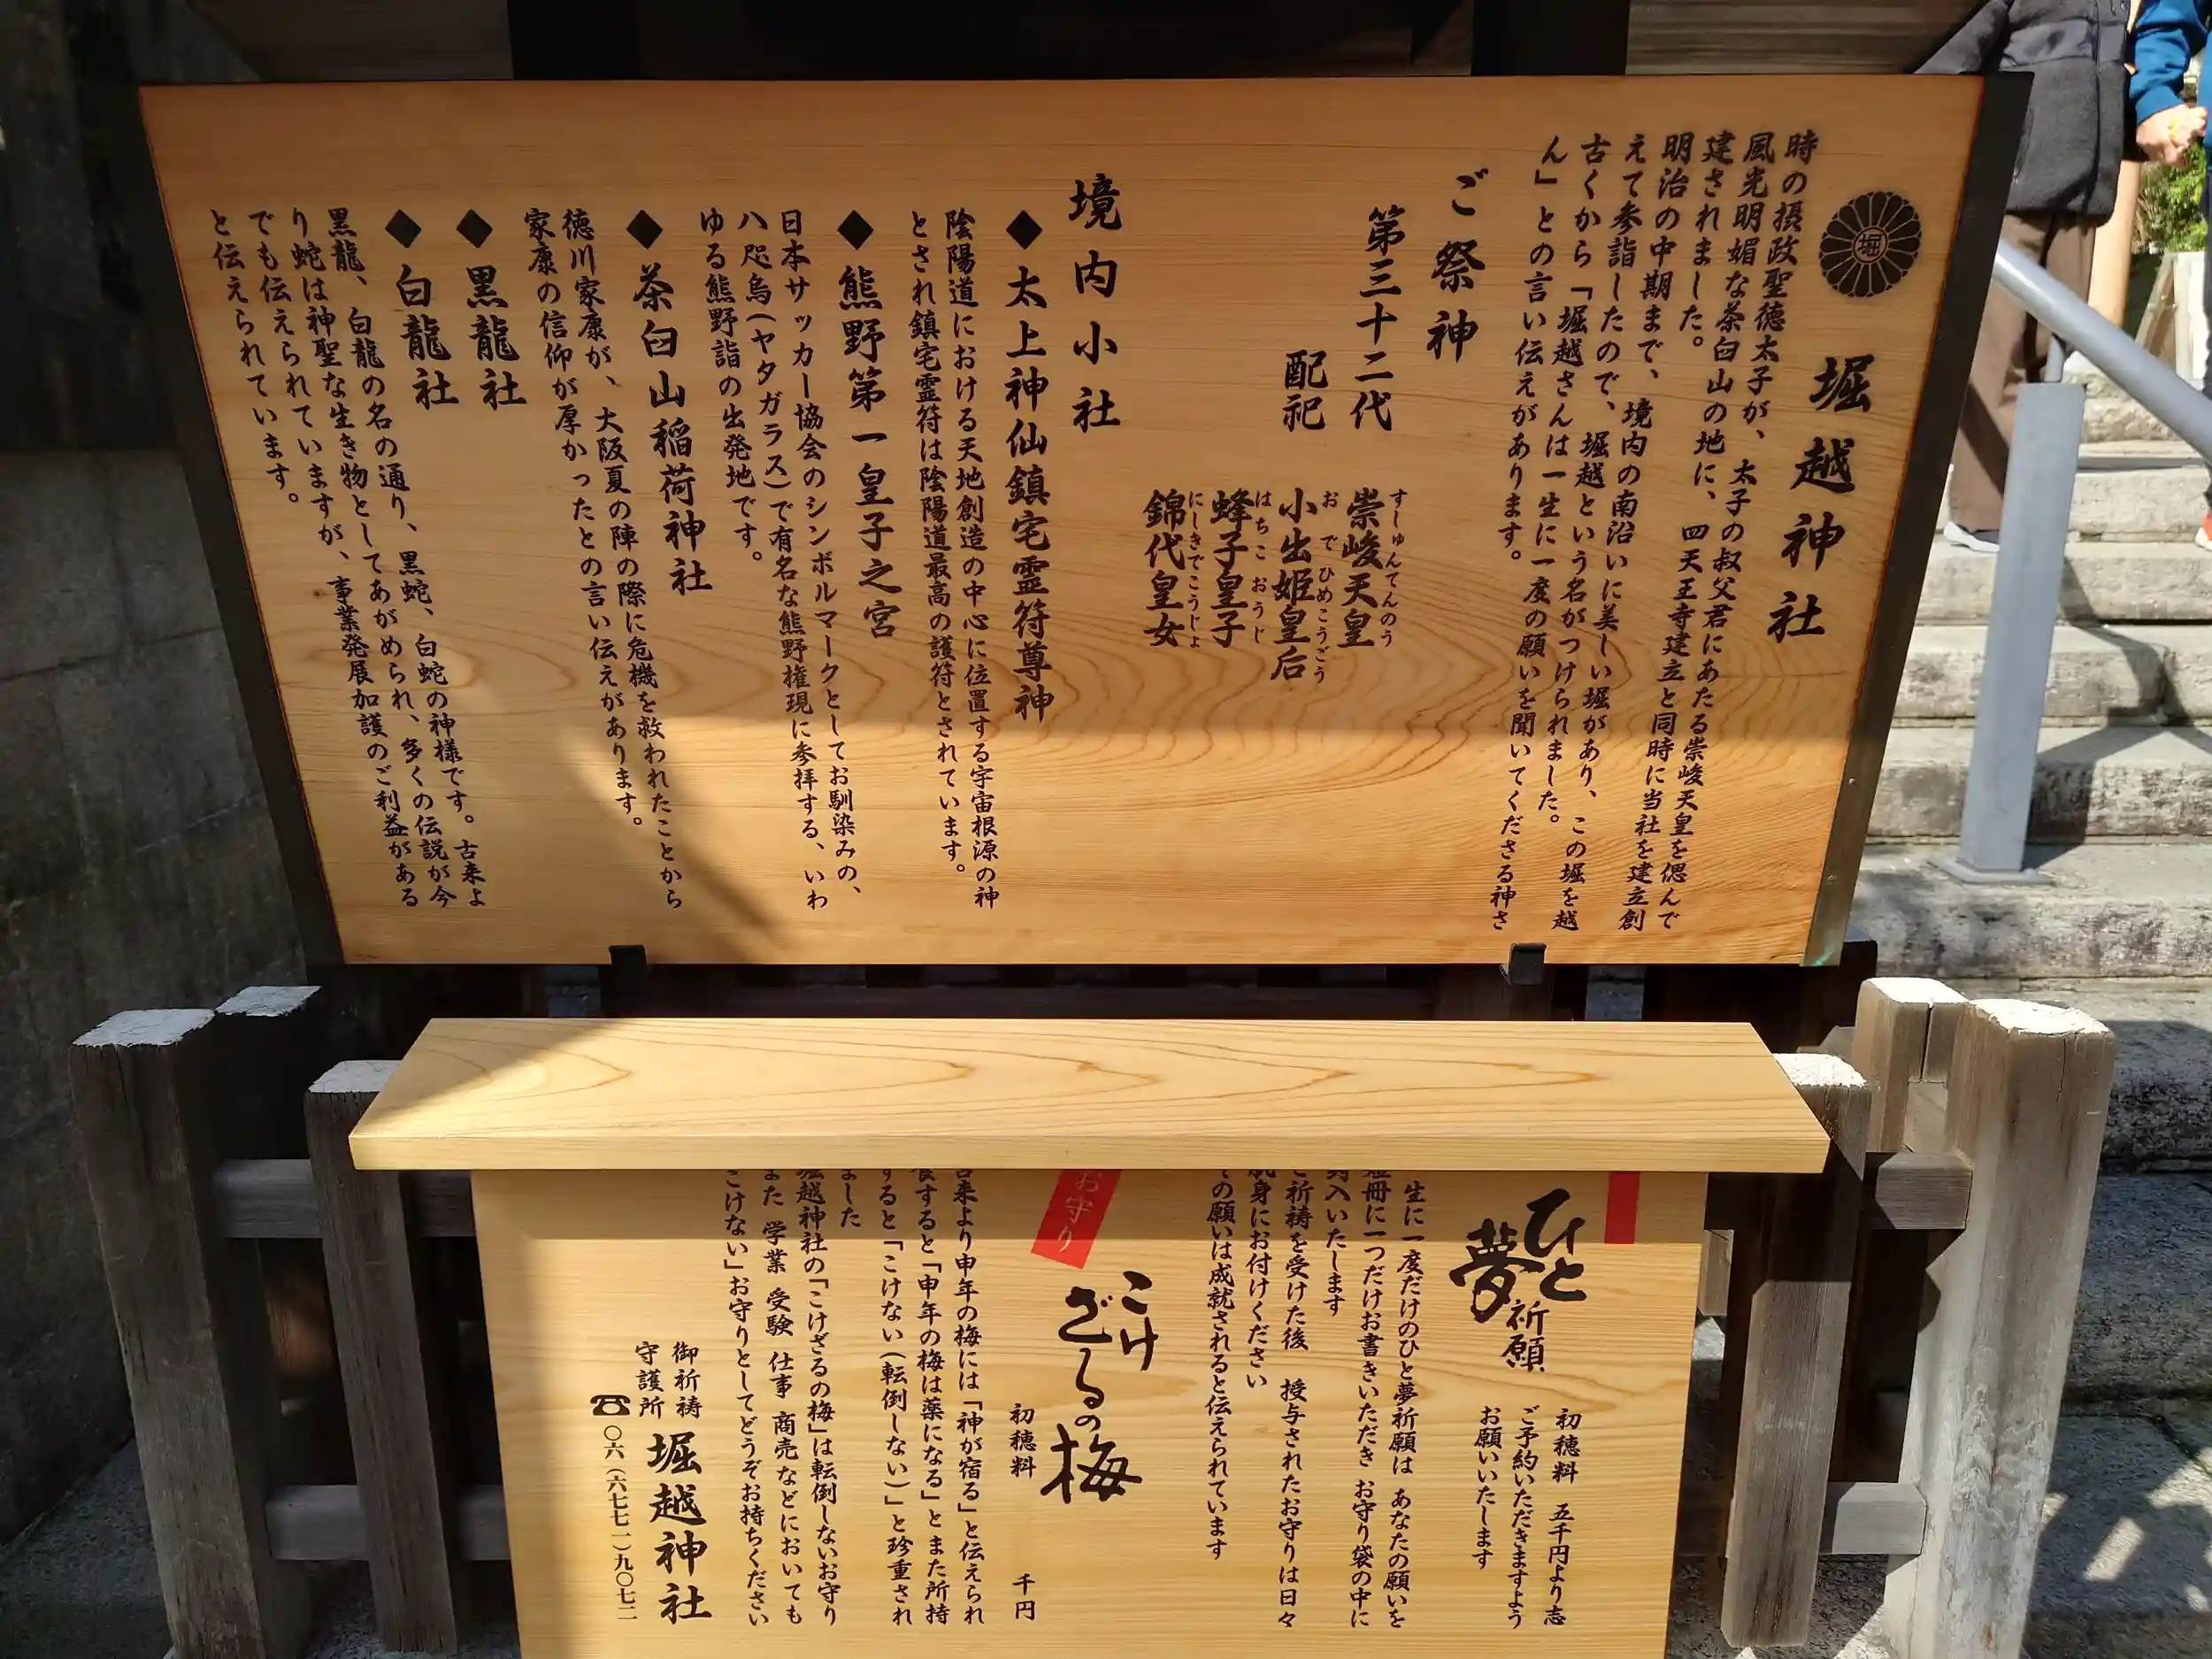 堀
堀越神社
時の摂政聖徳太子が、太子の叔父君にあたる崇峻天皇を偲んで
風光明媚な茶臼山の地に、四天王寺建立と同時に当社を建立創
建されました。
明治の中期まで、境内の南沿いに美しい堀があり、この堀を越
えて参詣したので、堀越という名がつけられました。
古くから「堀越さんは一生に一度の願いを聞いてくださる神さ
ん」との言い伝えがあります。
ご祭神
第三十二代 崇峻天皇
すしゅんてんのう
配祀 小出姫皇后
おでひめこうごう
蜂子皇子
はちこおうじ
錦代皇女
にしきでこうじょ
境内小社
◆太上神仙鎮宅霊符尊神
陰陽道における天地創造の中心に位置する宇宙根源の神
とされ鎮宅霊符は陰陽道最高の護符とされています。
◆熊野第一皇子之宮
日本サッカー協会のシンボルマークとしてお馴染みの、
八咫烏(ヤタガラス)で有名な熊野権現に参拝する、いわ
ゆる熊野詣の出発地です。
◆茶臼山稲荷神社
徳川家康が、大阪夏の陣の際に危機を救われたことから
家康の信仰が厚かったとの言い伝えがあります。
◆黒龍社
◆白龍社
黒龍、白龍の名の通り、黒蛇、白蛇の神様です。古来よ
り蛇は神聖な生き物としてあがめられ、多くの伝説が今
でも伝えられていますが、事業発展加護のご利益がある
と伝えられています。
ひと夢祈願
初穂料 五千円より志
ご予約いただきますよう
お願いいたします
生に一度だけのひと夢祈願は あなたの願いを
短冊に一つだけお書きいただき お守り袋の中に
封入いたします
ご祈祷を受けた後 授与されたお守りは日々
肌身にお付けください
の願いは成就されると伝えられています
お守り
こけざるの梅
初穂料 千円
古来より申年の梅には「神が宿る」と伝えられ
食すると「申年の梅は薬になる」とまた所持
すると「こけない(転倒しない)」と珍重され
ました
堀越神社の「こけざるの梅」は転倒しないお守り
また 学業 受験 仕事 商売などにおいても
こけない」お守りとしてどうぞお持ちください
御祈祷
守護所
堀越神社
☎〇六(六七七一)九〇七二